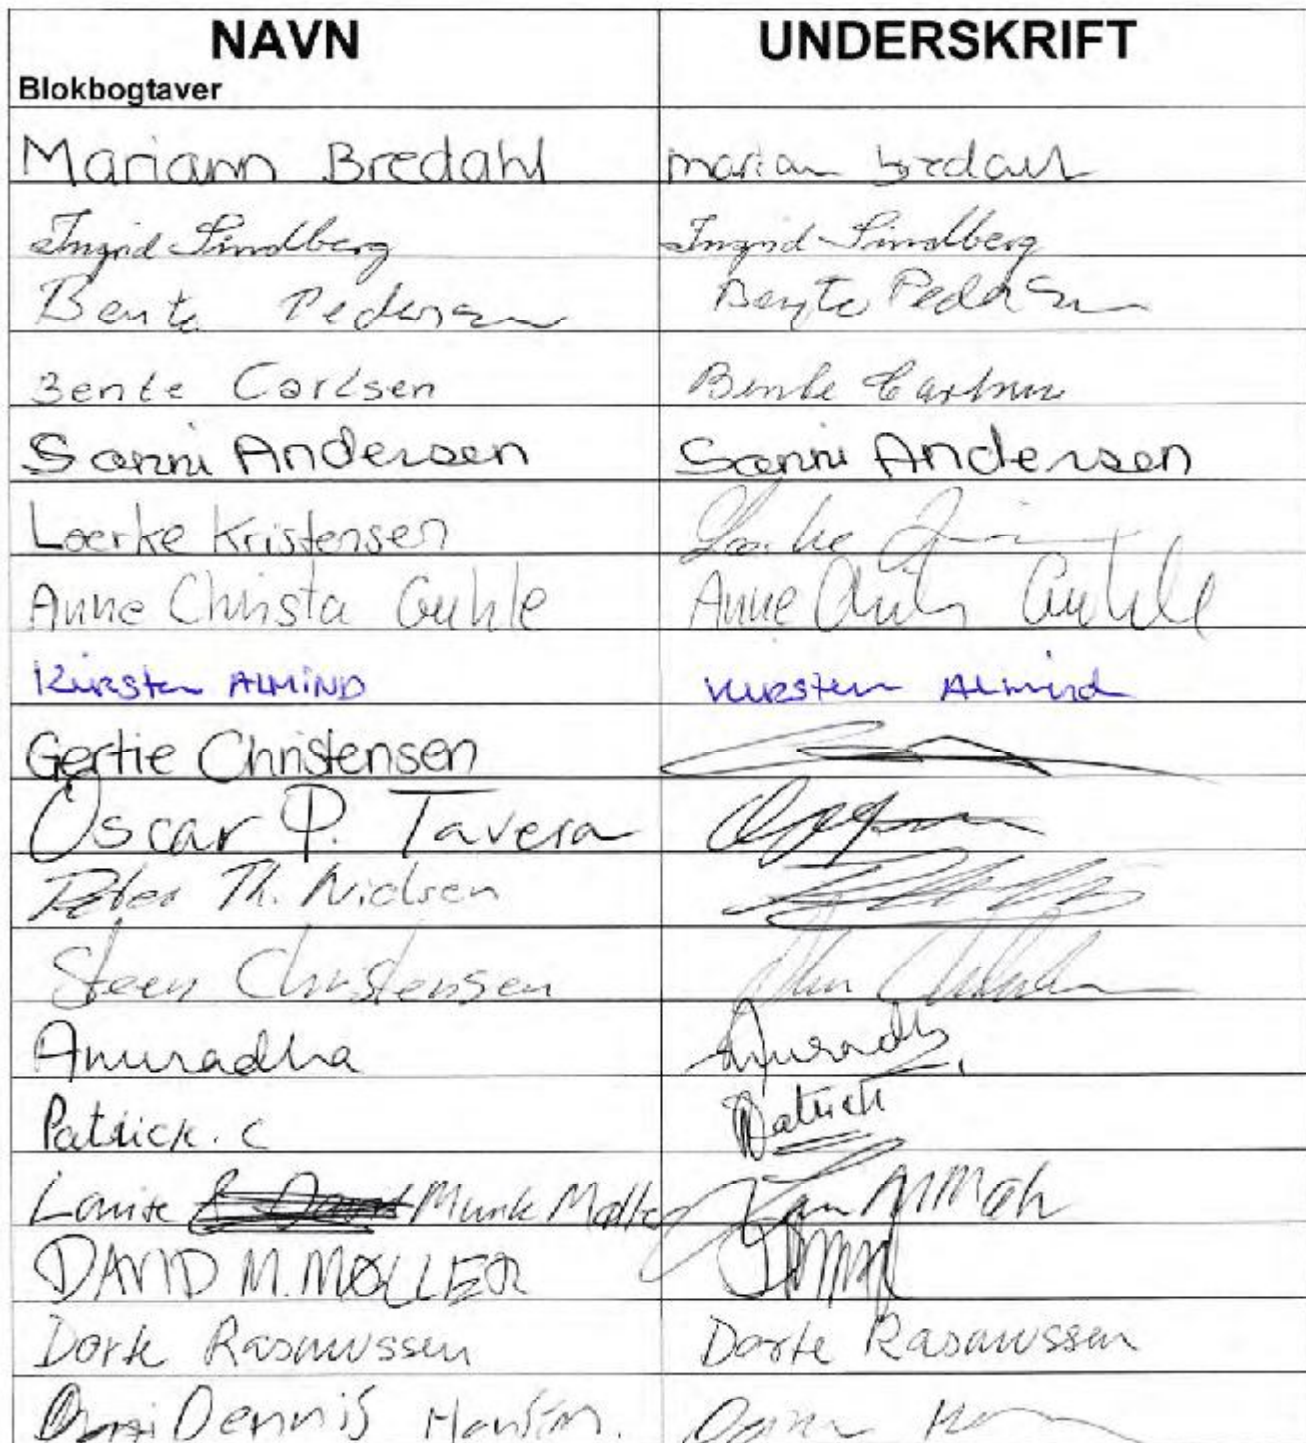 NAVN UNDERSKRIFT
Blokbogtaver
Mariann Bredahl marian bredahl
Ingrid Lindberg Ingrid Lindberg
Bente Pedersen Bente Pedersen
Bente Carlsen Bente Carlsen
Sanni Andersen Sanni Andersen
Laerke Kristensen
Anne Christa Guhle Anne Guhle
Kirsten ALMIND Kirsten Almind
Gertie Christensen
Oscar P. Tavera
Peter Th. Nielsen
Steen Christensen
Anuradha Anuradha
Patrick. C Patrick
Louise Munk Møller
DAVID M. MØLLER
Dorte Rasmussen Dorte Rasmussen
Dennis Hansen.